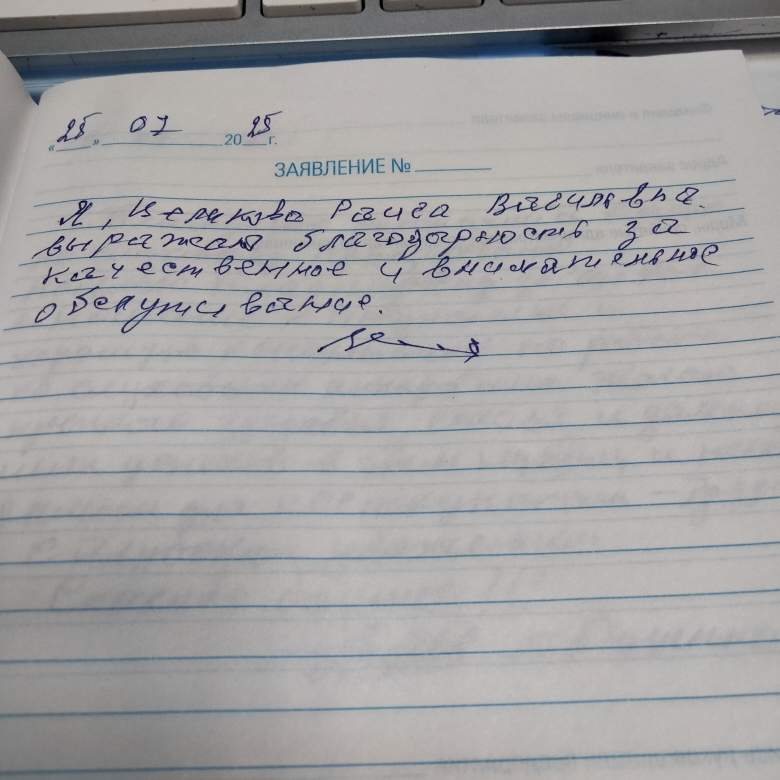 « 25 » 07 20 25 г.
ЗАЯВЛЕНИЕ №
Я, Раиса Васильевна.
выражаю благодарность за
качественное и внимательное
обслуживание.